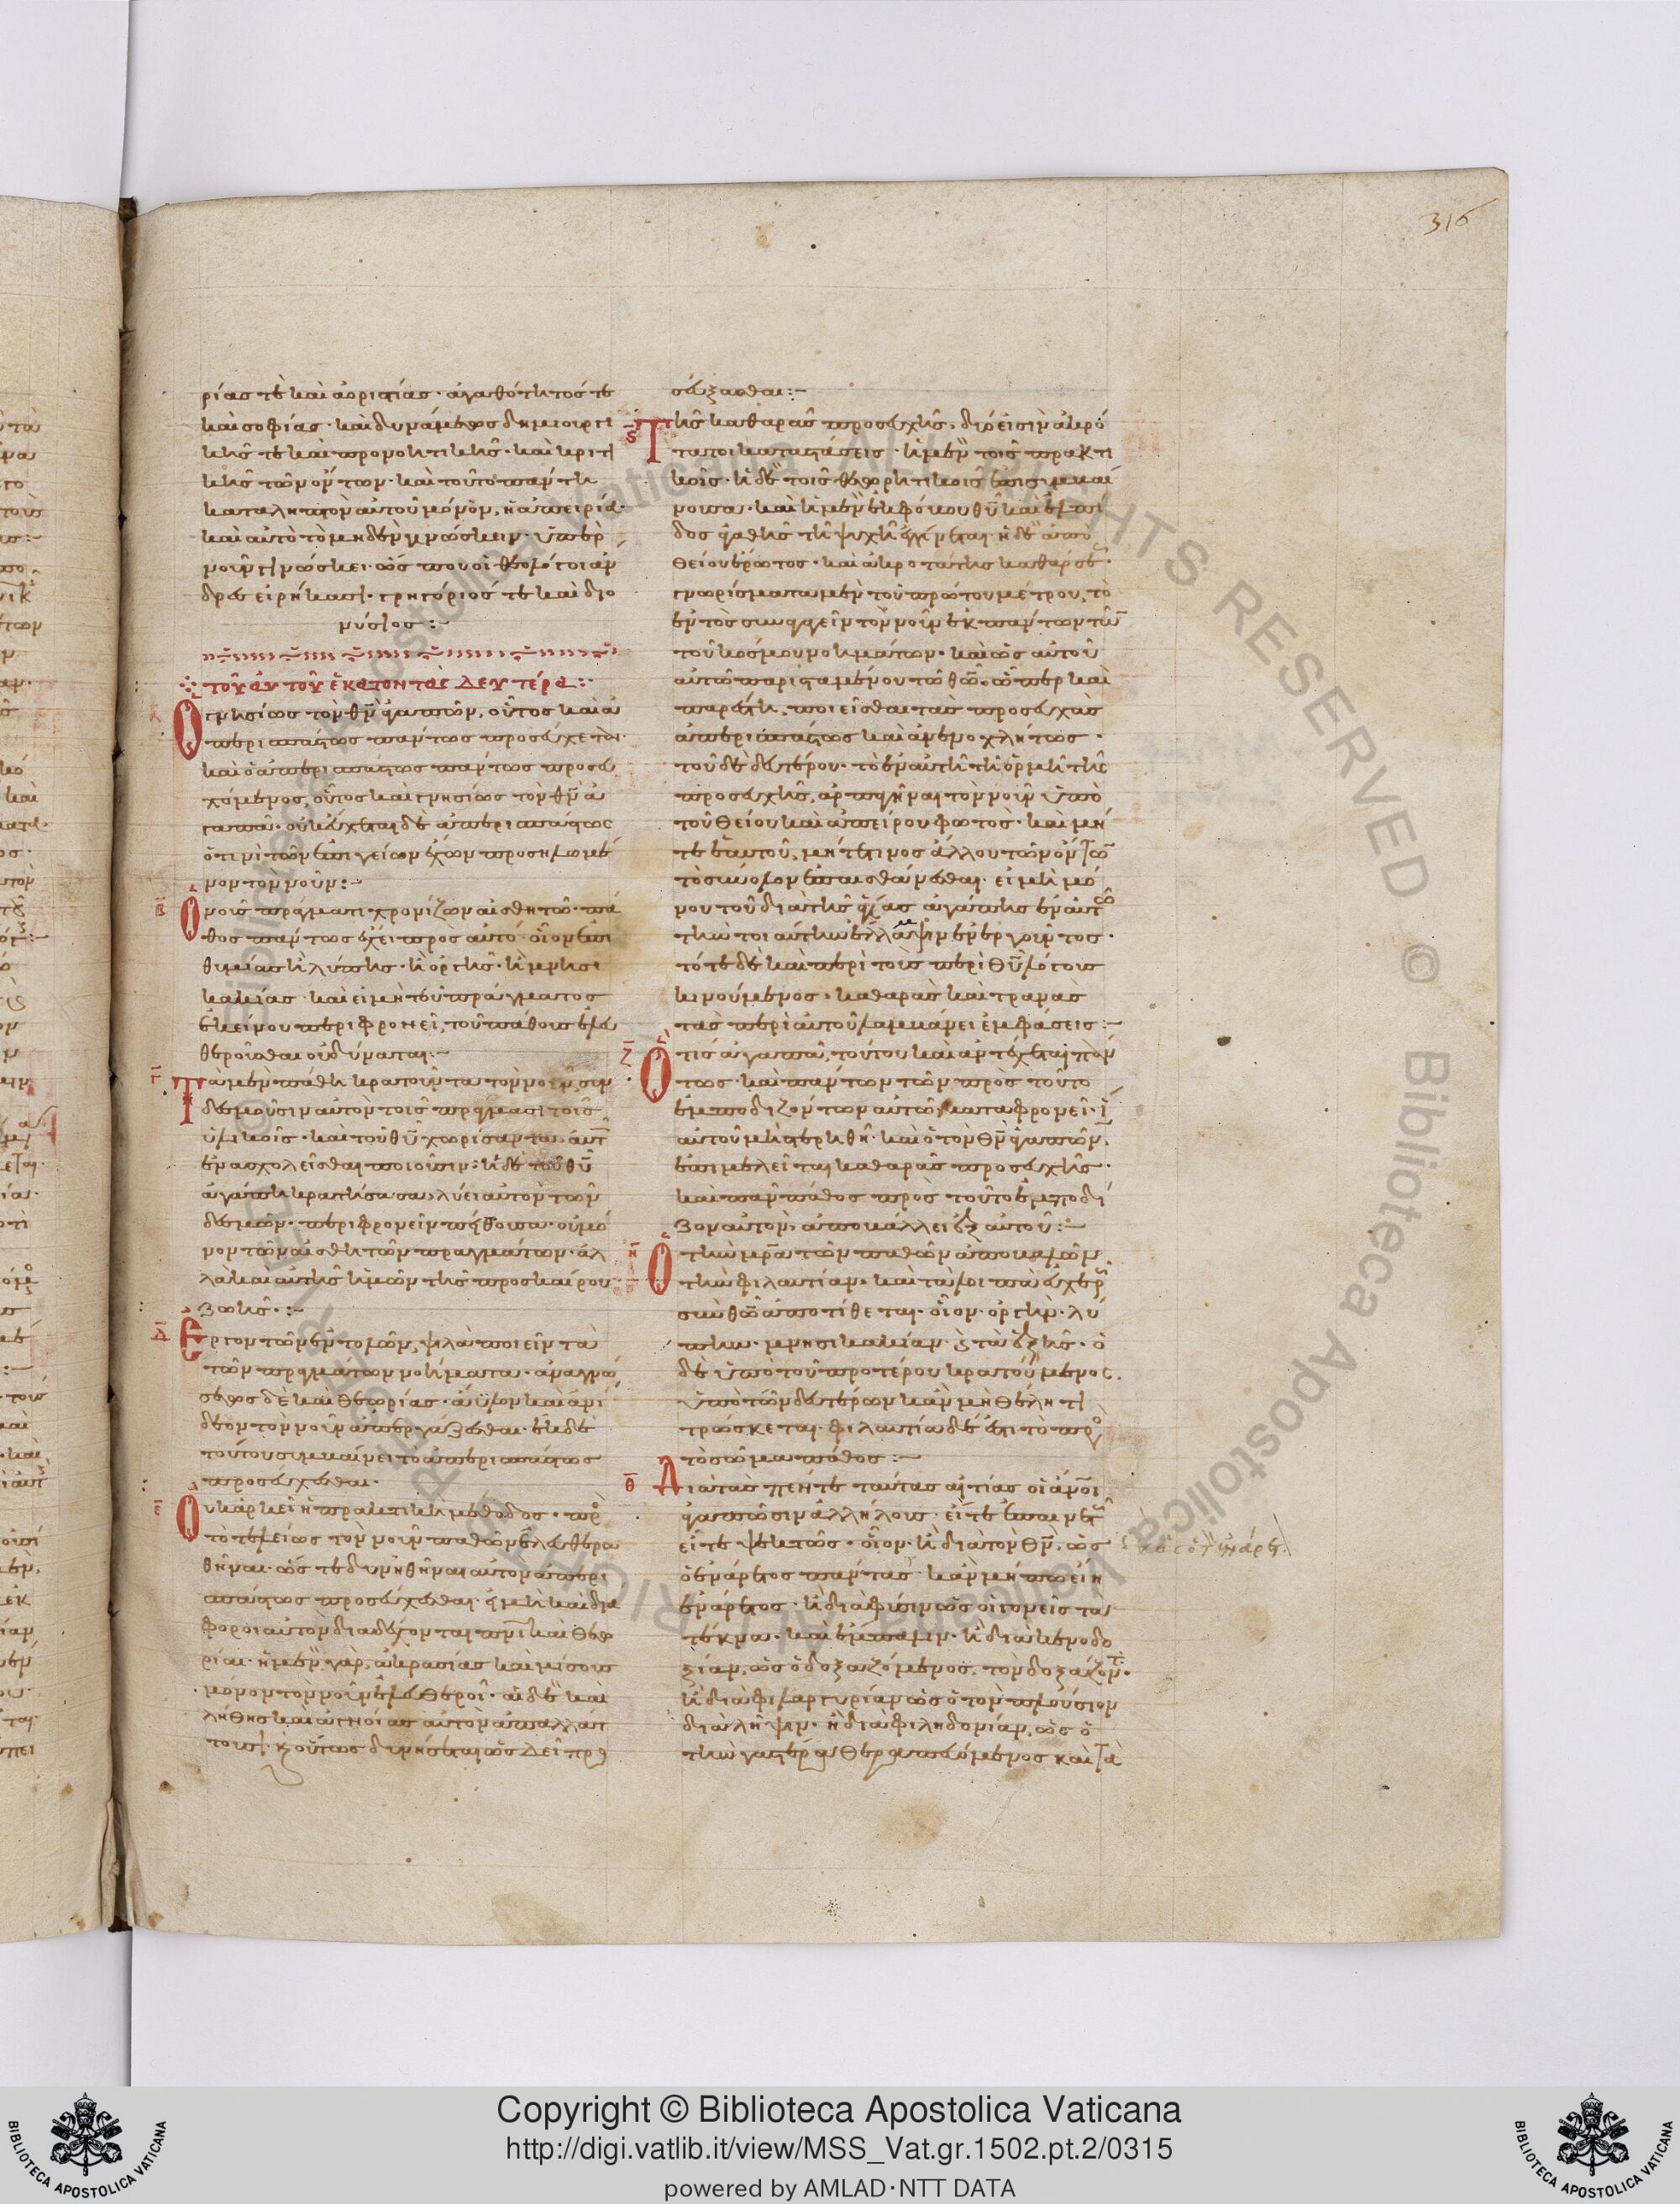 316
ρίας τε καὶ ἀοριστίας· ἀγαθότητός τε
καὶ σοφίας· καὶ δυνάμεως δημιουργι
κῆς τε καὶ προνοητικῆς· καὶ κριτι
κῆς τῶν ὄντων· καὶ τοῦτο πάντη
καταληπτὸν αὐτοῦ μόνον, ἡ ἀπειρία·
καὶ αὐτὸ τὸ μηδὲν γινώσκειν· ὑπὲρ
νοῦν γινώσκει· ὥς που οἱ θεολόγοι ἄν
δρες εἰρήκασι· γρηγόριός τε καὶ διο
νύσιος :-
τοῦ αὐτοῦ ἑκατοντὰς δευτέρα :-
Ὁ γνησίως τὸν θν̄ ἀγαπῶν, οὗτος καὶ ἀ
περισπάστως πάντως προσεύχεται·
καὶ ὁ ἀπερισπάστως πάντως προσευ
χόμενος, οὗτος καὶ γνησίως τὸν θν̄ ἀ
γαπᾶ· οὐκ εὔχεται δὲ ἀπερισπάστως
ὅ τινι τῶν ἐπιγείων ἔχων προσηλωμέ
νον τὸν νοῦν :-
β̄ Ὁ νοῦς πράγματι χρονίζων αἰσθητῶ· πά
θος πάντως ἔχει πρὸς αὐτό· οἷον ἐπι
θυμίας ἢ λύπης· ἢ ὀργῆς· ἢ μνησι
κακίας· καὶ εἰ μὴ τοῦ πράγματος
ἐκείνου περιφρονεῖ, τοῦ πάθους ἐλευ
θεροῦσθαι οὐ δύναται·-
γ̄ Τὰ μὲν πάθη κρατοῦντα τὸν νοῦν, συν
δεσμοῦσιν αὐτὸν τοῖς πράγμασι τοῖς
ὑλικοῖς· καὶ τοῦ θῡ χωρίσαντα αὐτ
ἐνασχολεῖσθαι ποιοῦσιν· ἡ δὲ τοῦ θῡ
ἀγάπη κρατήσασα, λύει αὐτὸν τῶν
δεσμῶν· περιφρονεῖν πείθουσα· οὐ μό
νον τῶν αἰσθητῶν πραγμάτων· ἀλ
λὰ καὶ αὐτῆς ἡμῶν τῆς προσκαίρου
ζωῆς· :-
δ̄ Ἔργον τῶν ἐντολῶν, ψιλὰ ποιεῖν τὰ
τῶν πραγμάτων νοήματα· ἀναγνώ
σεως δὲ καὶ θεωρίας· ἄϋλον καὶ ἀνεί
δεον τὸν νοῦν ἀπεργάζεσθαι· ἐκ δὲ
τούτου συμμαίνει τὸ ἀπερισπάστως
προσεύχεσθαι·
ε̄ Οὐκ ἀρκεῖ ἡ πρακτικὴ μέθοδος· πρ
τὸ τελείως τὸν νοῦν παθῶν ἐλευθερω
θῆναι· ὥστε δυνηθῆναι αὐτὸν ἀπερι
σπάστως προσεύχεσθαι· εἰ μὴ καὶ διά
φοροι αὐτὸν διαδέχονται πνῑ καὶ θεω
ρίαι· ἡ μὲν γὰρ, ἀκρασίας καὶ μίσους
μόνον τὸν νοῦν ἐλευθεροῖ· αἱ δὲ καὶ
λήθης καὶ ἀγνοίας αὐτὸν ἀπαλλάτ
τουσι· καὶ οὕτως δυνήσεται ὡς δεῖ προ
σεύξασθαι :-
ϛ̄ Τῆς καθαρᾶς προσευχῆς, δύο εἰσὶν ἀκρό
ταται καταστάσεις· ἡ μὲν τοῖς πρακτι
κοῖς· ἡ δὲ τοῖς θεωρητικοῖς ἐπισυμμαί
νουσα· καὶ ἡ μὲν ἐκ φόβου θῡ καὶ ἐλπί
δος ἀγαθῆς τῆ ψυχῆ ἐγγίνεται· ἡ δὲ ἀπὸ
θείου ἔρωτος· καὶ ἀκροτάτης καθάρσε
γνωρίσματα μὲν τοῦ πρώτου μέτρου, τὸ
ἐντὸς συναγαγεῖν τὸν νοῦν ἐκ πάντων τῶν
τοῦ κόσμου νοημάτων· καὶ ὡς αὐτοῦ
αὐτῶ παρισταμένου τοῦ θῡ· ὥσπερ καὶ
παρέστη, ποιεῖσθαι τὰς προσευχὰς
ἀπερισπάστως καὶ ἀνενοχλήτως·
τοῦ δὲ δευτέρου· τὸ ἐν αὐτῆ τῆ ὁρμῆ τῆς
προσευχῆς, ἁρπαγῆναι τὸν νοῦν ὑπὸ
τοῦ θείου καὶ ἀπείρου φωτός· καὶ μή
τε ἑαυτοῦ, μήτε τινος ἄλλου τῶν ὄντων
τὸ σύνολον ἐπαισθάνεσθαι· εἰ μὴ μό
νου τοῦ διὰ τῆς ἀγάπης ἐν αὐτῶ
τὴν τοιαύτην ἔλλαμψιν ἐνεργοῦντος·
τότε δὲ καὶ περὶ τοὺς περὶ θῡ λόγους
κινούμενος, καθαρὰς καὶ τρανὰς
τὰς περὶ αὐτοῦ λαμμάνει ἐμφάσεις :-
ζ̄ Ὅ τις ἀγαπᾶ, τούτου καὶ ἀντέχεται πάν
τως· καὶ πάντων τῶν πρὸς τοῦτο
ἐμποδιζόντων αὐτῶ, καταφρονεῖ· ἵ
αὐτοῦ μὴ στερηθῆ· καὶ ὁ τὸν θν̄ ἀγαπῶν,
ἐπιμελεῖται καθαρᾶς προσευχῆς·
καὶ πᾶν πάθος πρὸς τοῦτο ἐμποδί
ζον αὐτὸν, ἀποβάλλει ἐξ αὐτοῦ :-
η̄ Ὁ τὴν μρ̄α τῶν παθῶν ἀποβαλὼν
τὴν φιλαυτίαν· καὶ τὰ λοιπὰ εὐχερῶς
σὺν θῶ ἀποτίθεται· οἷον· ὀργὴν· λύ
πην· μνησικακίαν· καὶ τὰ ἑξῆς· ὁ
δὲ ὑπὸ τοῦ προτέρου κρατούμενος,
ὑπὸ τῶν δευτέρων κἂν μὴ θέλη τι
τρώσκεται· φιλαυτία δέ ἐστι τὸ πρ
τὸ σῶμα πάθος :-
θ̄ Διὰ τὰς πέντε ταύτας αἰτίας οἱ ἄνοι
ἀγαπῶσιν ἀλλήλους· εἴτε ἐπαινετῶς
εἴτε ψεκτῶς· οἷον· ἢ διὰ τὸν θν̄, ὡς
ὁ ἐνάρετος πάντας· κἂν μήπω εἴη
ἐνάρετος· ἢ διὰ φύσιν ὡς οἱ γονεῖς τὰ
τέκνα· καὶ ἔμπαλιν· ἢ διὰ κενοδο
ξίαν, ὡς ὁ δοξαζόμενος, τὸν δοξάζοντα·
ἢ διὰ φιλαργυρίαν ὡς ὁ τὸν πλούσιον
διὰ λῆψιν· ἢ διὰ φιληδονίαν, ὡς ὁ
τὴν γαστέρα θεραπευόμενος καὶ τὰ
Copyright © Biblioteca Apostolica Vaticana
http://digi.vatlib.it/view/MSS_Vat.gr.1502.pt.2/0315
powered by AMLAD·NTT DATA
BIBLIOTECA APOSTOLICA VATICANA
BIBLIOTECA APOSTOLICA VATICANA
© Biblioteca Apostolica Vaticana ALL RIGHTS RESERVED © Biblioteca Apostolica Vaticana ALL RIGHTS RESERVED